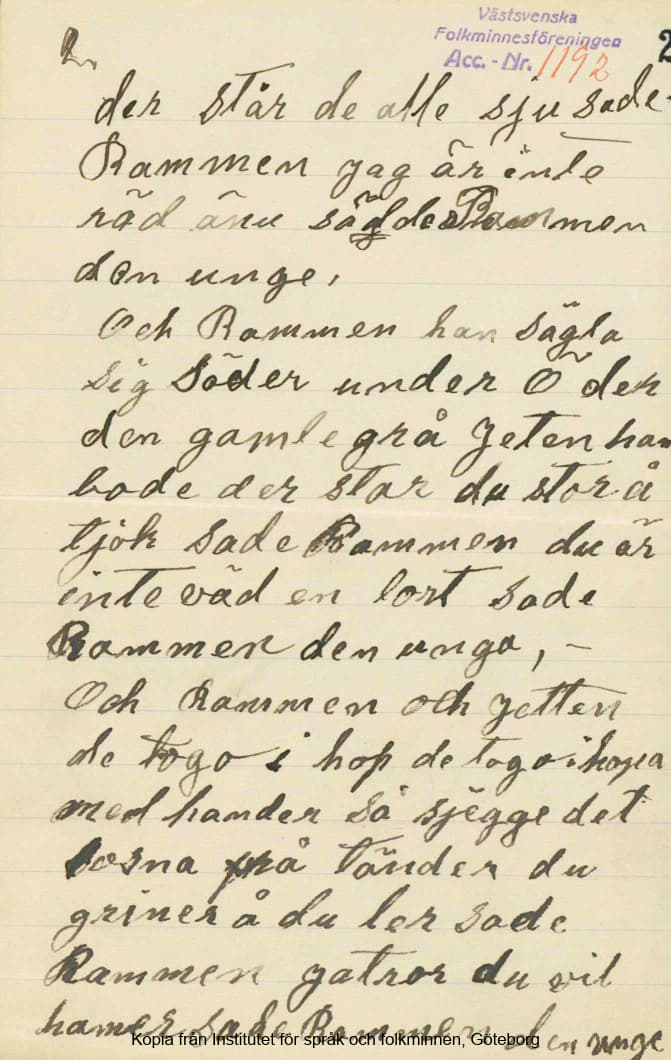 2
Västsvenska
Folkminnesföreningen
Acc.-Nr. 1192
2
der står de alle sju sade
Rammen jag är inte
räd änu sägde Rammen
den unge,
Och Rammen han sägla
sig söder under Ö der
den gamle grå Jeten han
bode der star du stor å
tjök sade Rammen du är
inte väd en lort sade
Rammen den unga, –
Och Rammen och Jetten
de togo i hop de togo ihopa
med hander så sjegge det
losna på tänder du
griner å du ler sade
Rammen ja tror du vil
hamer sade Rammen den unge
Kopia från Institutet för språk och folkminnen, Göteborg